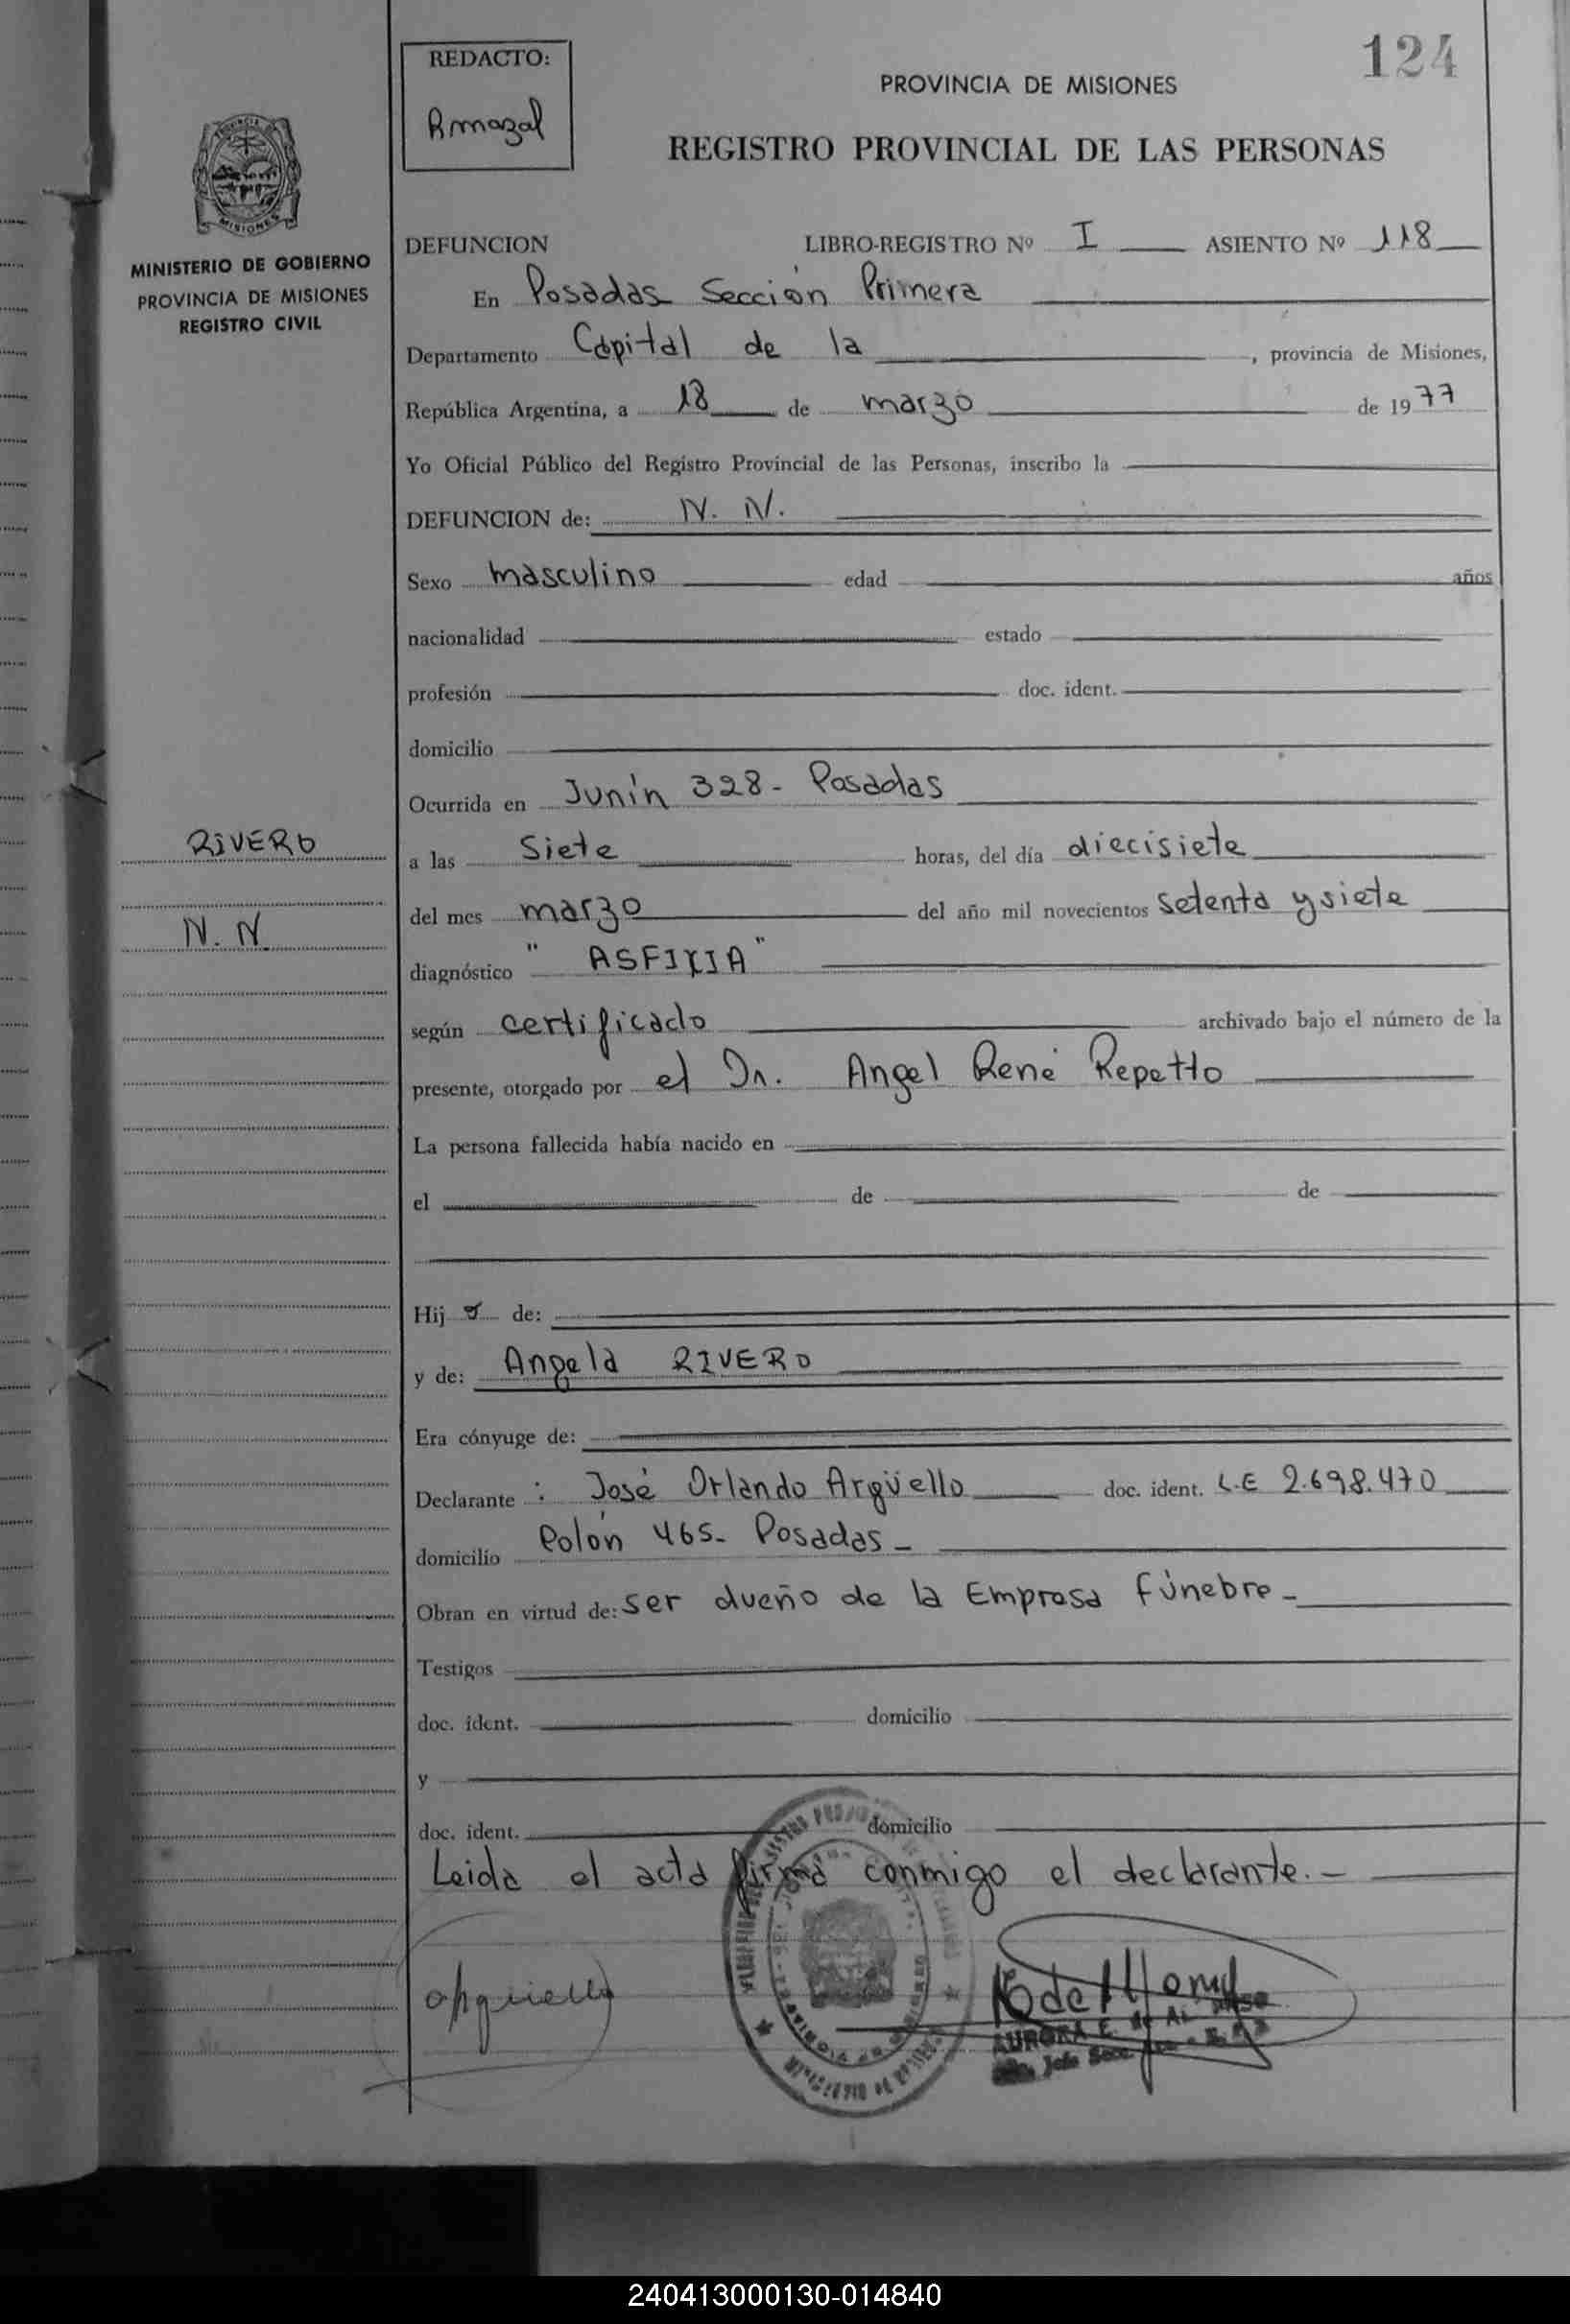 124
REDACTO:
Amazal
PROVINCIA DE MISIONES
REGISTRO PROVINCIAL DE LAS PERSONAS
MISIONES
MINISTERIO DE GOBIERNO
PROVINCIA DE MISIONES
REGISTRO CIVIL
DEFUNCION LIBRO-REGISTRO Nº I ASIENTO Nº 118
En Posadas Sección Primera
Departamento Capital de la , provincia de Misiones,
República Argentina, a 18 de marzo de 1977
Yo Oficial Público del Registro Provincial de las Personas, inscribo la
DEFUNCION de: N. N.
Sexo masculino edad años
nacionalidad estado
profesión doc. ident.
domicilio
Ocurrida en Junín 328- Posadas
RIVERO
N. N
a las Siete horas, del día diecisiete
del mes marzo del año mil novecientos setenta y siete
diagnóstico "ASFIXIA"
según certificado archivado bajo el número de la
presente, otorgado por el Dr. Angel René Repetto
La persona fallecida había nacido en
el de de
Hij o de:
y de: Angela RIVERO
Era cónyuge de:
Declarante : José Orlando Argüello doc. ident. L.E 2.698.470
domicilio Colón 465- Posadas-
Obran en virtud de: ser dueño de la Empresa fúnebre-
Testigos
doc. ident. domicilio
y
doc. ident. domicilio
Leida el acta firma conmigo el declarante.-
Arguello
AURORA E. de
240413000130-014840